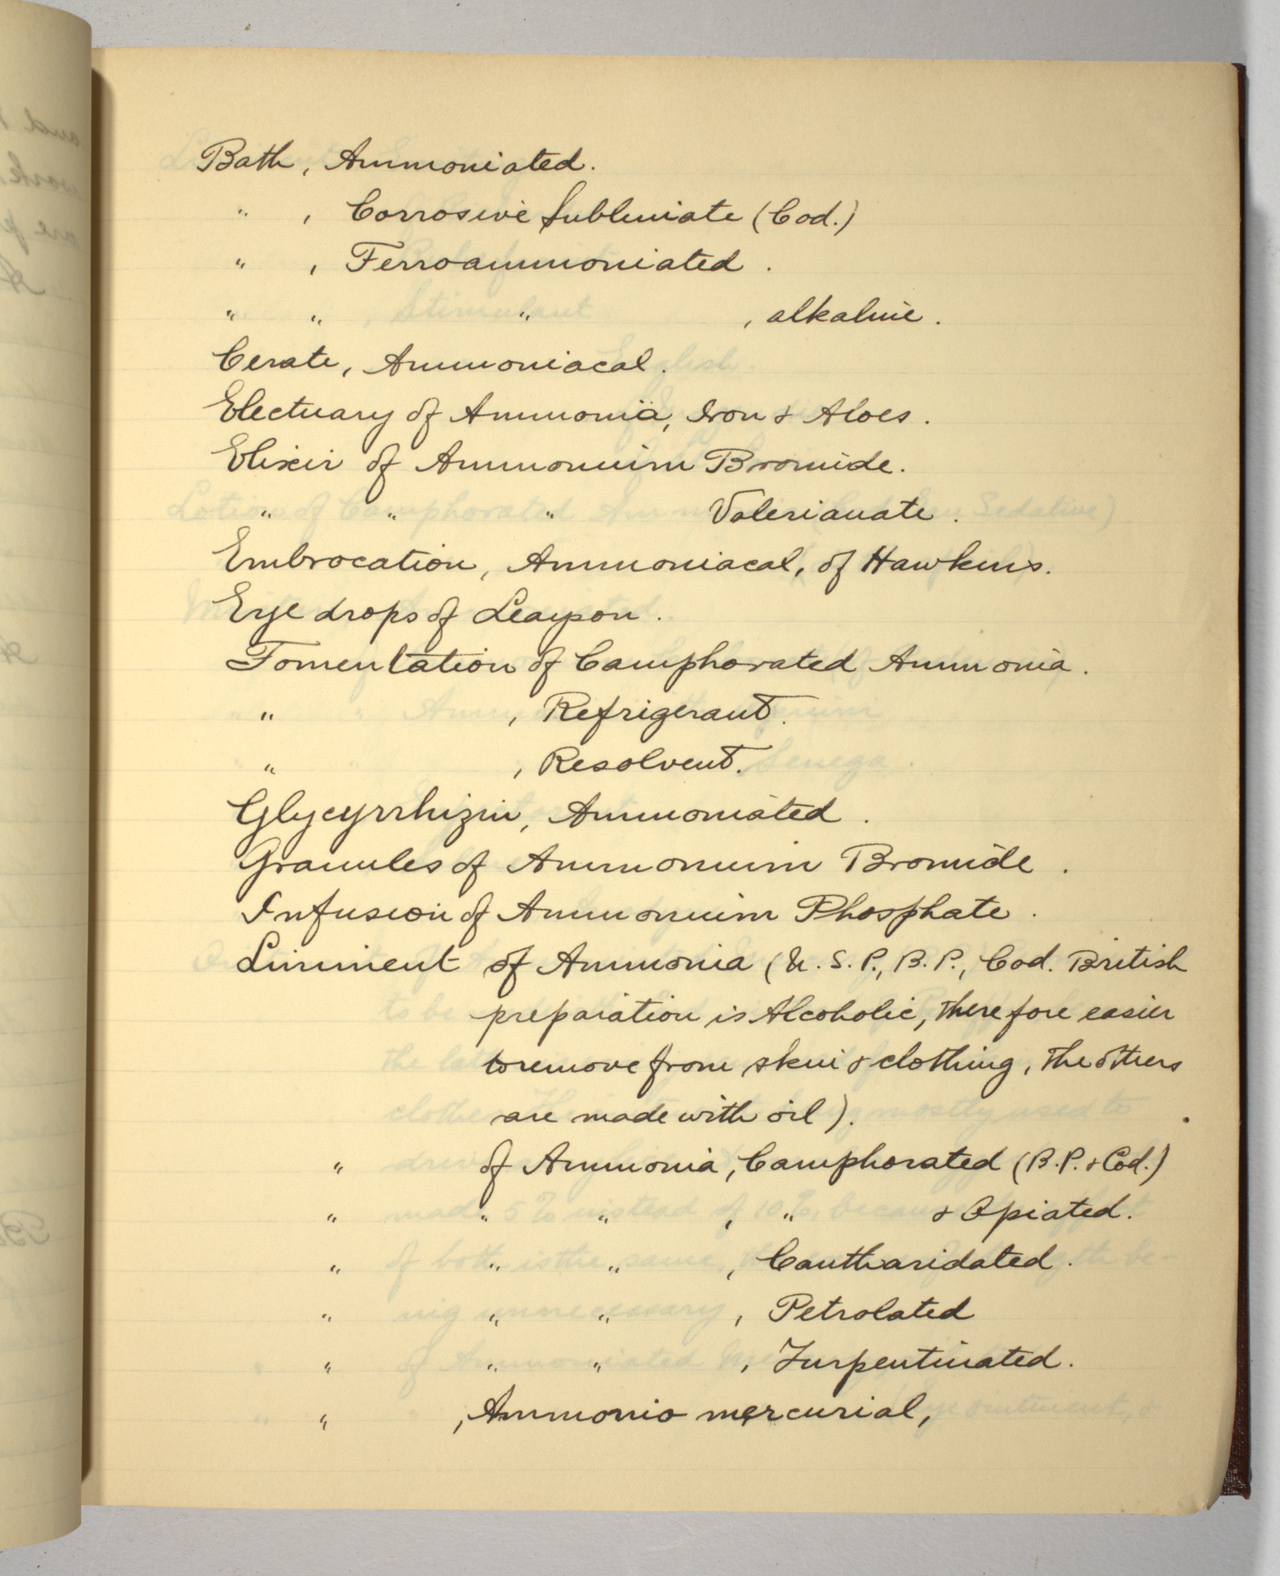 Bath, Ammoniated.
" , Corrosive Sublimate (Cod.)
" , Ferroammoniated.
" " " , alkaline.
Cerate, Ammoniacal.
Electuary of Ammonia, Iron & Aloes.
Elixir of Ammonium Bromide.
" " " Valerianate.
Embrocation, Ammoniacal, of Hawkins.
Eye drops of Leayson.
Fomentation of Camphorated Ammonia.
" , Refrigerant.
" , Resolvent.
Glycyrrhizin, Ammoniated.
Granules of Ammonium Bromide.
Infusion of Ammonium Phosphate.
Liniment of Ammonia (U.S.P., B.P., Cod. British
preparation is Alcoholic, therefore easier
to remove from skin & clothing, the others
are made with oil).
" of Ammonia, Camphorated (B.P. & Cod.)
" " " , " & Opiated.
" " " , Cantharidated.
" " " , Petrolated
" " " , Turpentinated.
" , Ammonio mercurial,